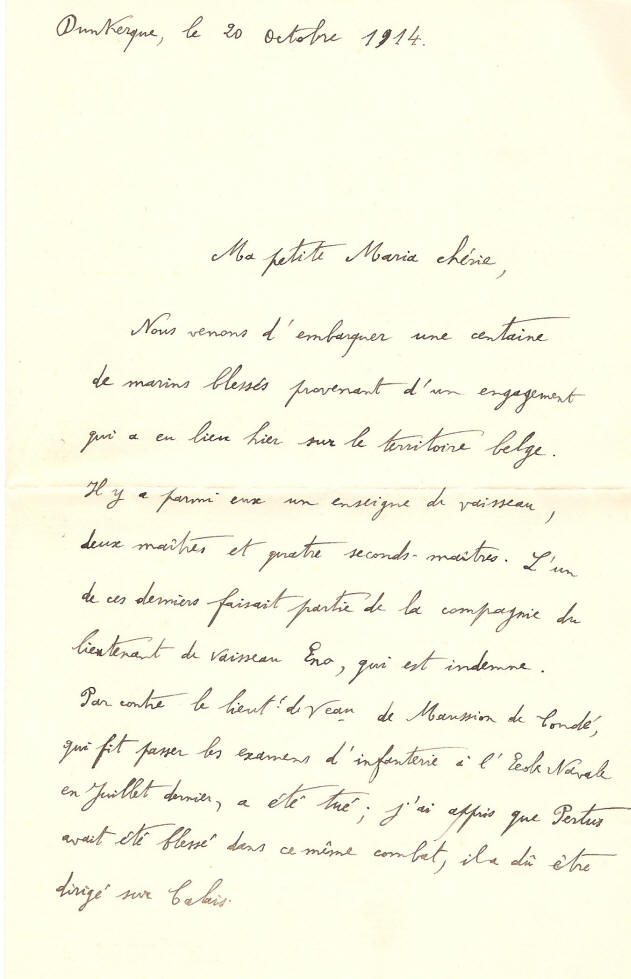 Dunkerque, le 20 octobre 1914.
Ma petite Maria chérie,
Nous venons d'embarquer une centaine
de marins blessés provenant d'un engagement
qui a eu lieu hier sur le territoire belge.
Il y a parmi eux un enseigne de vaisseau,
deux maîtres et quatre seconds-maîtres. L'un
de ces derniers faisait partie de la compagnie du
lieutenant de vaisseau Eno, qui est indemne.
Par contre le lieut.t de Veau de Maussion de Condé,
qui fit passer les examens d'infanterie à l'Ecole Navale
en Juillet dernier, a été tué ; j'ai appris que Pertus
avait été blessé dans ce même combat, il a dû être
dirigé sur Calais.